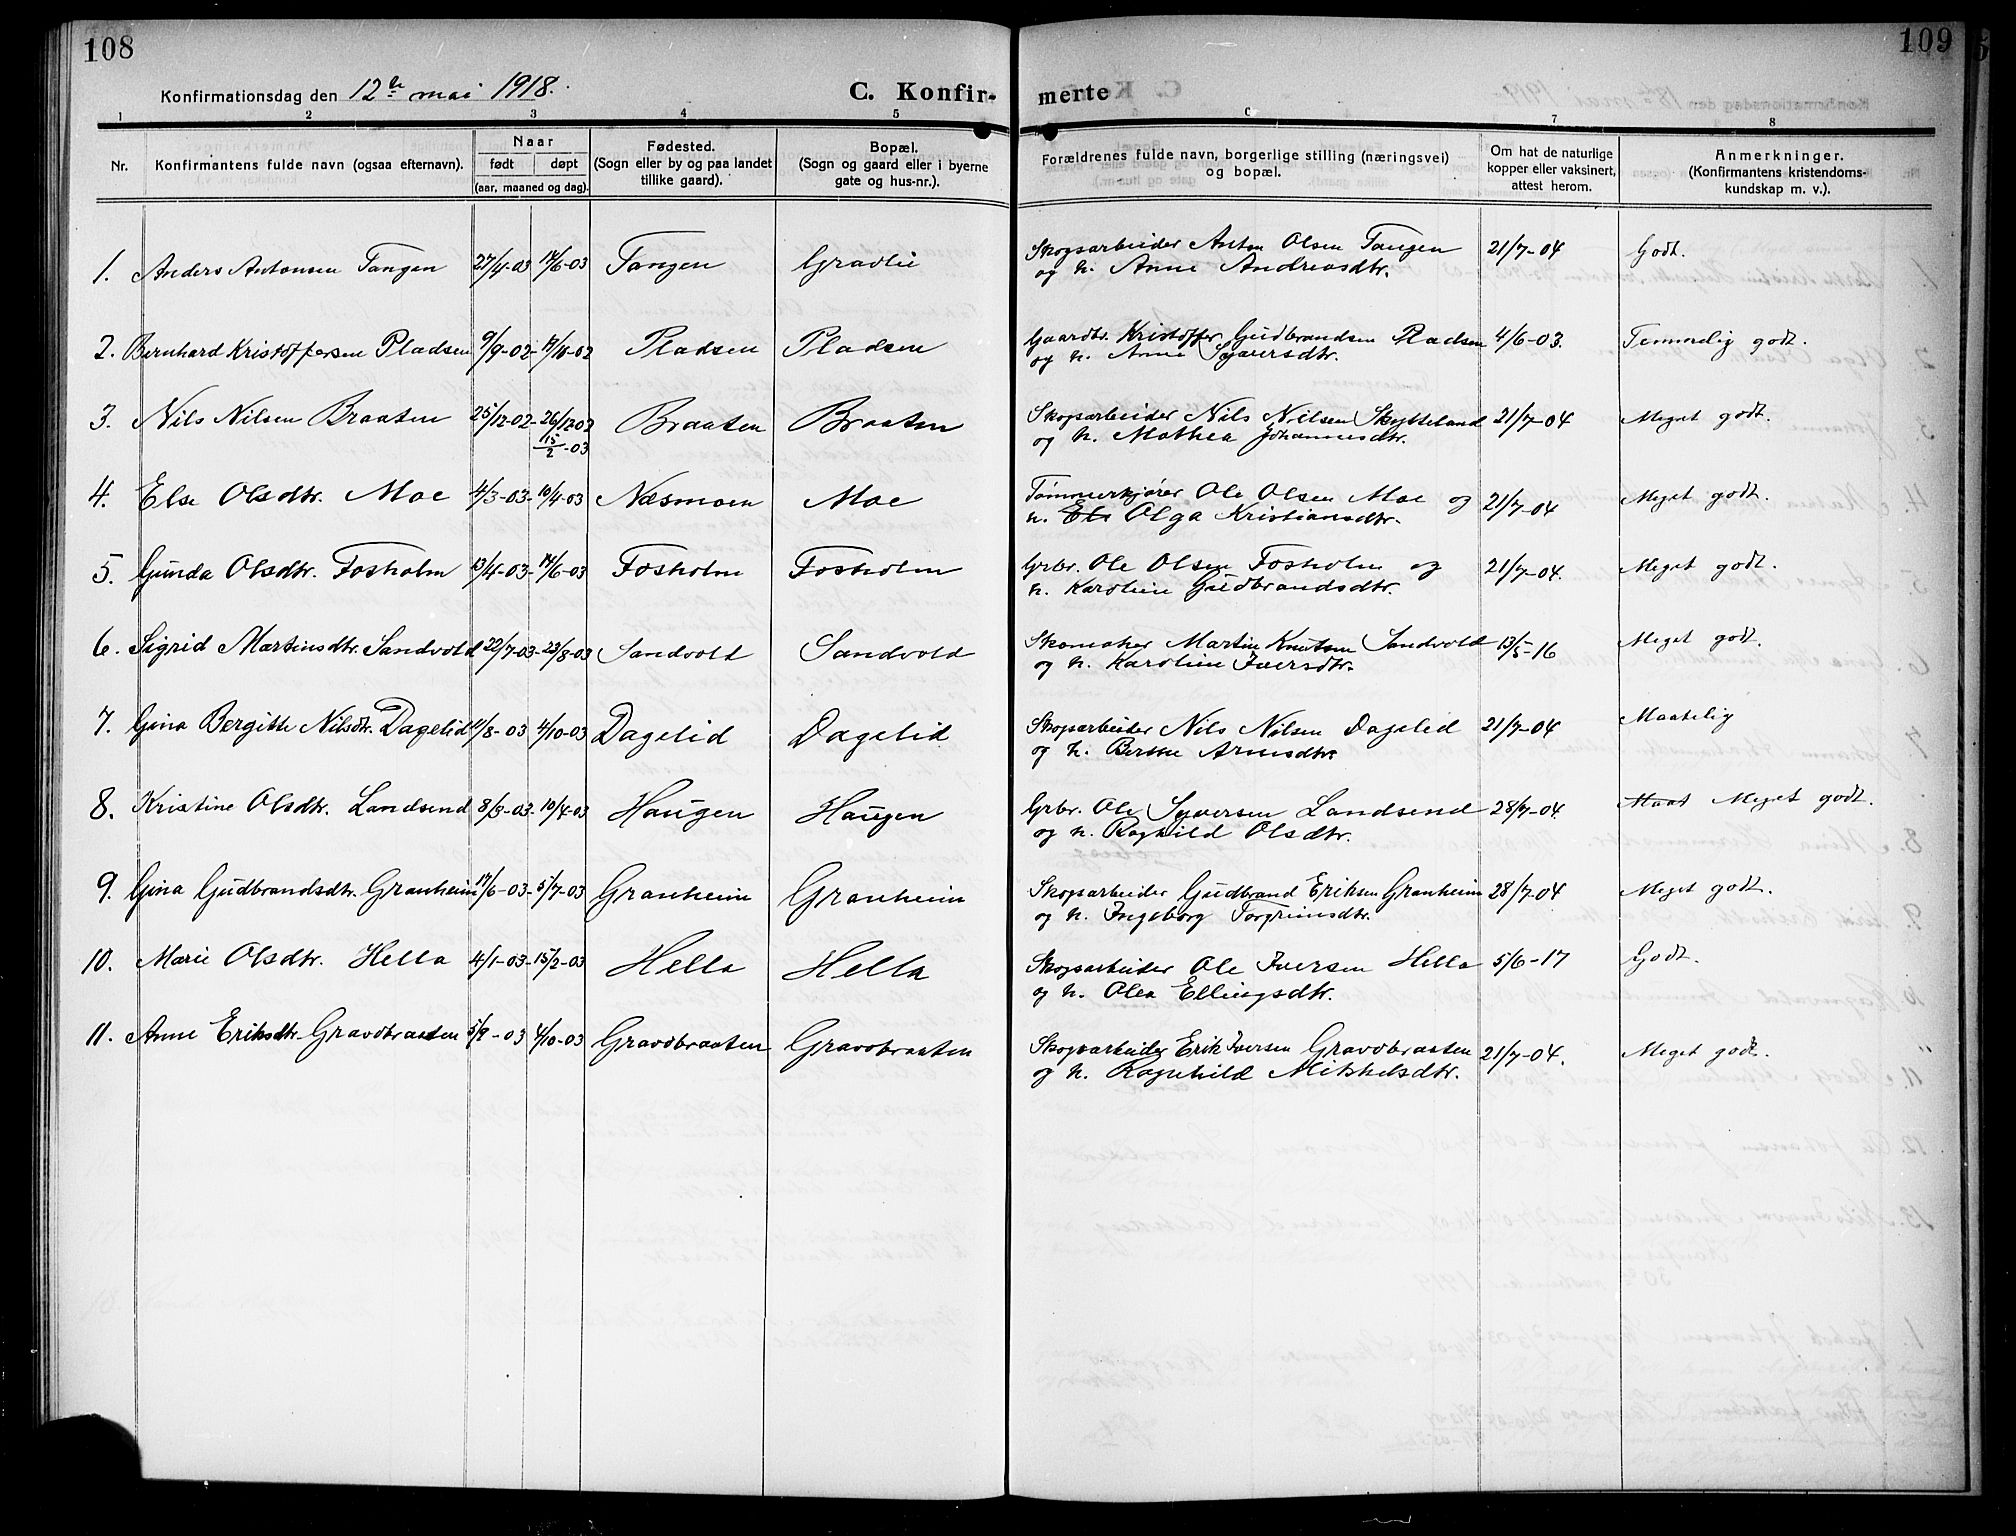 108
109
Konfirmationsdag den 12te mai 1918.
C. Konfir-
merte
1 2 3 4 5 6 7 8
Nr.
Konfirmantens fulde navn (ogsaa efternavn).
Naar
født
døpt
(aar, maaned og dag).
Fødested.
(Sogn eller by og paa landet
tillike gaard).
Bopæl.
(Sogn og gaard eller i byerne
gate og hus-nr.).
Forældrenes fulde navn, borgerlige stilling (næringsvei)
og bopæl.
Om hat de naturlige
kopper eller vaksinert,
attest herom.
Anmerkninger.
(Konfirmantens kristendoms-
kundskap m. v.).
1. Anders Antonsen Tangen 27/4-03 14/6-03 Tangen Gravlie Skogsarbeider Anton Olsen Tangen 21/7-04 Godt.
og h. Anne Andreasdtr.
2. Bernhard Kristoffersen Pladsen 9/9-02 Pladsen Pladsen Gaardbr. Kristoffer Gudbrandsen Pladsen 4/6-03. Temmelig godt.
og h. Anne Syversdtr.
3. Nils Nilsen Braaten 25/12-02- 26/12 02 Braaten Braaten Skogsarbeider Nils Nilsen Skytteland 21/7-04 Meget godt.
15/2-03 og h. Mathea Johannesdtr.
4. Else Olsdtr. Moe 4/3-03- 10/4-03 Næsmoen Moe Tømmerkjører Ole Olsen Moe og 21/7-04 Meget godt.
h. Els Olga Kristiansdtr.
5. Gunda Olsdtr. Fosholm 13/4-03- 14/6-03 Fosholm Fosholm Grbr. Ole Olsen Fosholm og 21/7-04. Meget godt.
h. Karoline Gudbrandsdtr.
6. Sigrid Martinsdtr. Sandvold 22/7-03- 23/8-03 Sandvold Sandvold Skomaker Martin Knutsen Sandvold 13/5-16 Meget godt.
og h. Karoline Iversdtr.
7. Gina Bergitte Nilsdtr. Dagelid 11/8-03 4/10-03 Dagelid Dagelid Skogsarbeider Nils Nilsen Dagelid 21/7-04 Maatelig
og h. Berthe Arnesdtr.
8. Kristine Olsdtr. Landsend 8/3-03- 10/4-03 Haugen Haugen Grbr. Ole Syversen Landsend 28/7-04. Maat Meget godt.
og h. Raghild Olsdtr.
9. Gina Gudbrandsdtr. Granheim 17/6-03- 5/7-03 Granheim Granheim Skogsarbeider Gudbrand Eriksen Granheim 28/7-04 Meget godt.
og h. Ingeborg Torgrimsdtr.
10. Marie Olsdtr. Hella 4/1-03- 15/2-03 Hella Hella Skogsarbeider Ole Iversen Hella 5/6-17 Godt.
og h. Olea Ellingsdtr.
11. Anne Eriksdtr. Gravdbraaten 5/9-03 4/10-03 Gravdbraaten Gravdbraaten Skogsarbeider Erik Iversen Gravdbraaten 21/7-04. Meget godt.
og h. Ragnhild Mikkelsdtr.